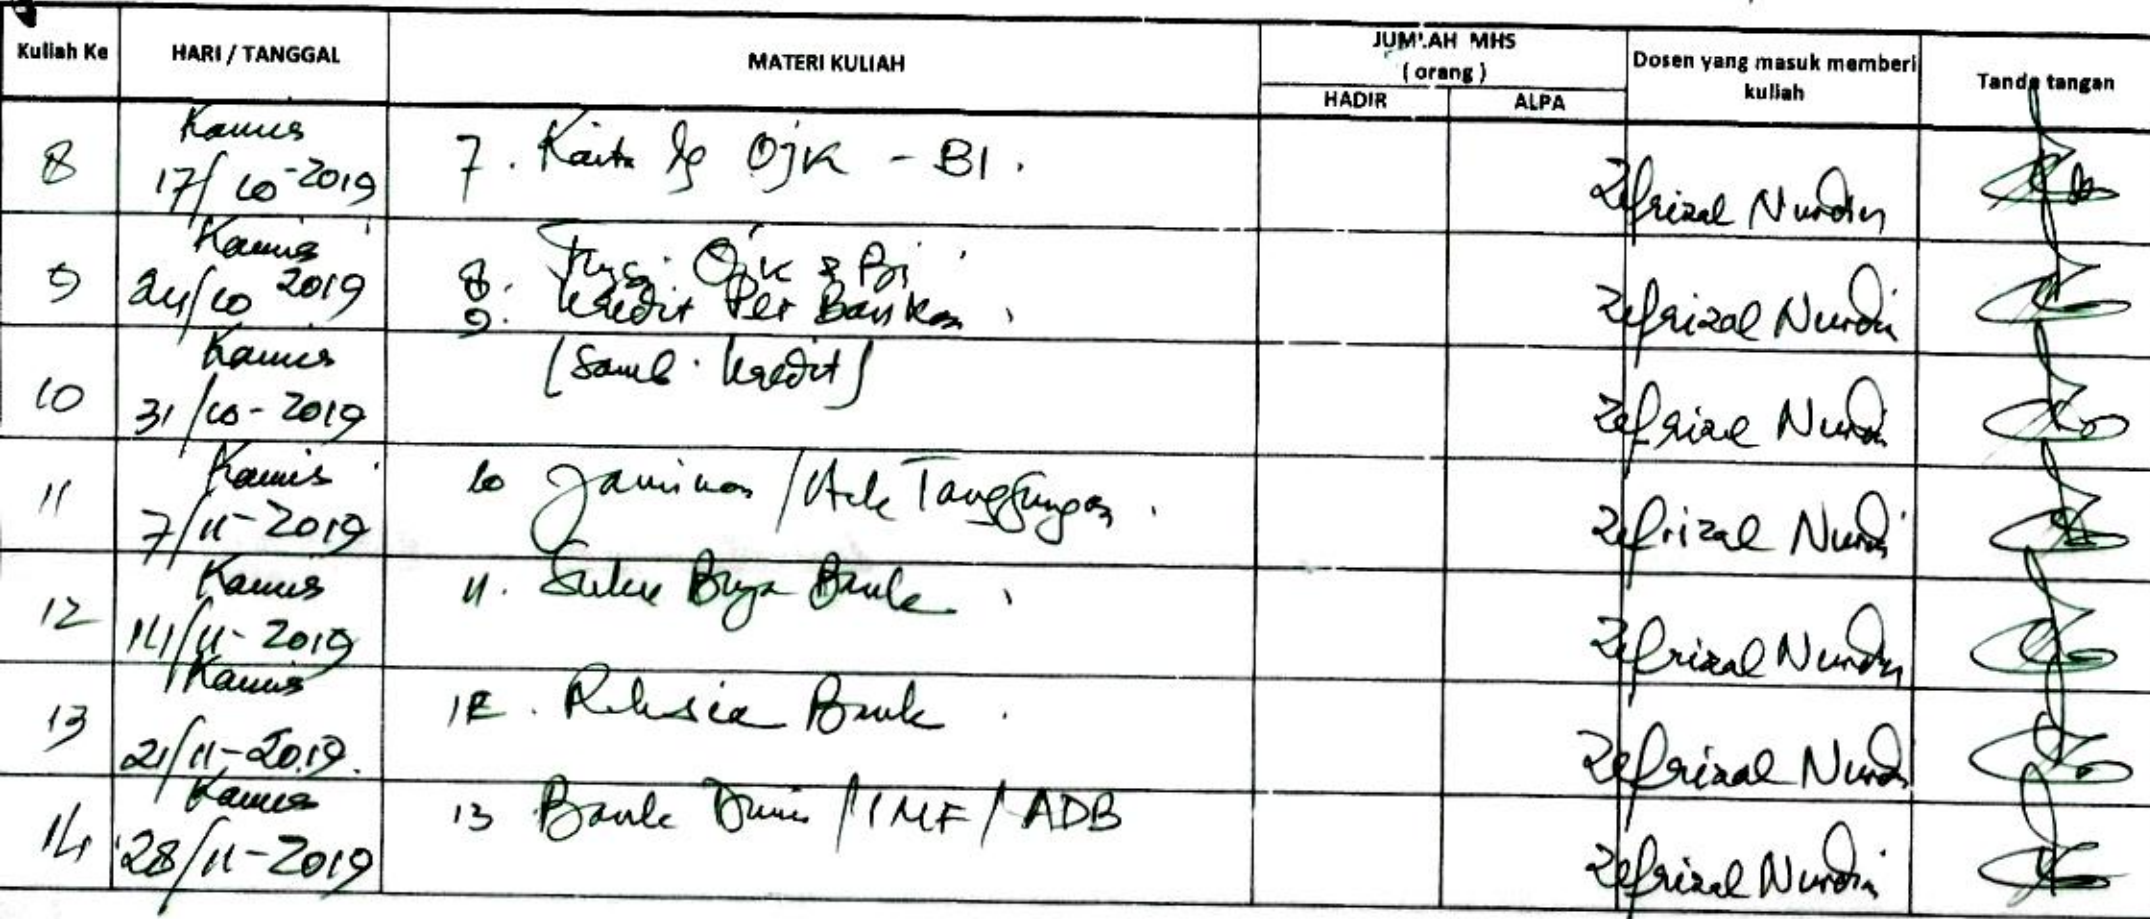 Kuliah Ke HARI / TANGGAL MATERI KULIAH JUMLAH MHS ( orang ) Dosen yang masuk memberi kuliah Tanda tangan
HADIR ALPA
8 Kamis 17/10-2019 7. Kait OJK - BI. Zefrizal Nurdin
9 Kamis 24/10 2019 8. OJK & BI Zefrizal Nurdin
9. Kredit Per Bankan
10 Kamis 31/10-2019 (Samb. Kredit) Zefrizal Nurdin
11 Kamis 7/11-2019 10 Jaminan / Hak Tanggungan. Zefrizal Nurdin
12 Kamis 14/11-2019 11. Suku Bunga Bank Zefrizal Nurdin
13 Kamis 21/11-2019. 12. Rahasia Bank. Zefrizal Nurdin
14 Kamis 28/11-2019 13 Bank Dunia / IMF / ADB Zefrizal Nurdin